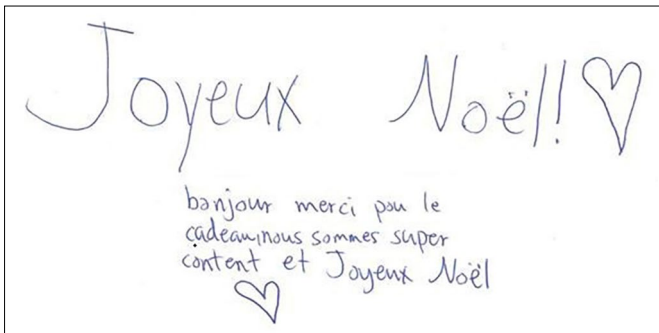 Joyeux Noël!
bonjour merci pou le
cadeau,nous sommes super
content et Joyeux Noël